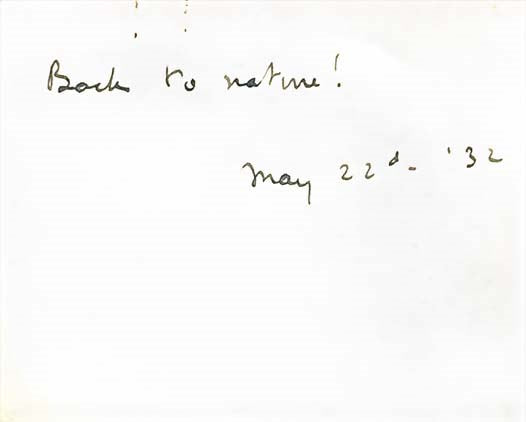 Back to nature!
May 22d. '32